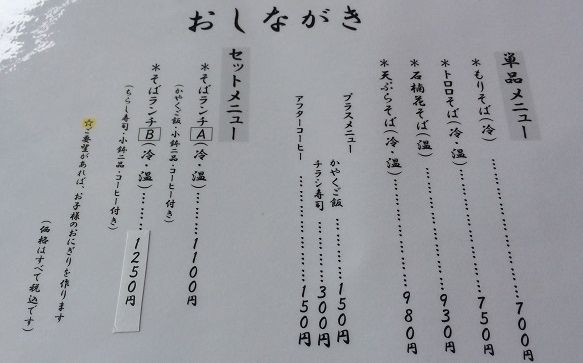 おしながき
単品メニュー
＊もりそば(冷)………………700円
＊トロロそば(冷・温)…………750円
＊石楠花そば(温)………………930円
＊天ぷらそば(冷・温)…………980円
プラスメニュー
かやくご飯………150円
チラシ寿司………300円
アフターコーヒー………………150円
セットメニュー
＊そばランチA(冷・温)………1100円
(かやくご飯・小鉢二品・コーヒー付き)
＊そばランチB(冷・温)………1250円
(ちらし寿司・小鉢二品・コーヒー付き)
☆ご要望があれば、お子様のおにぎりを作ります
(価格はすべて税込です)